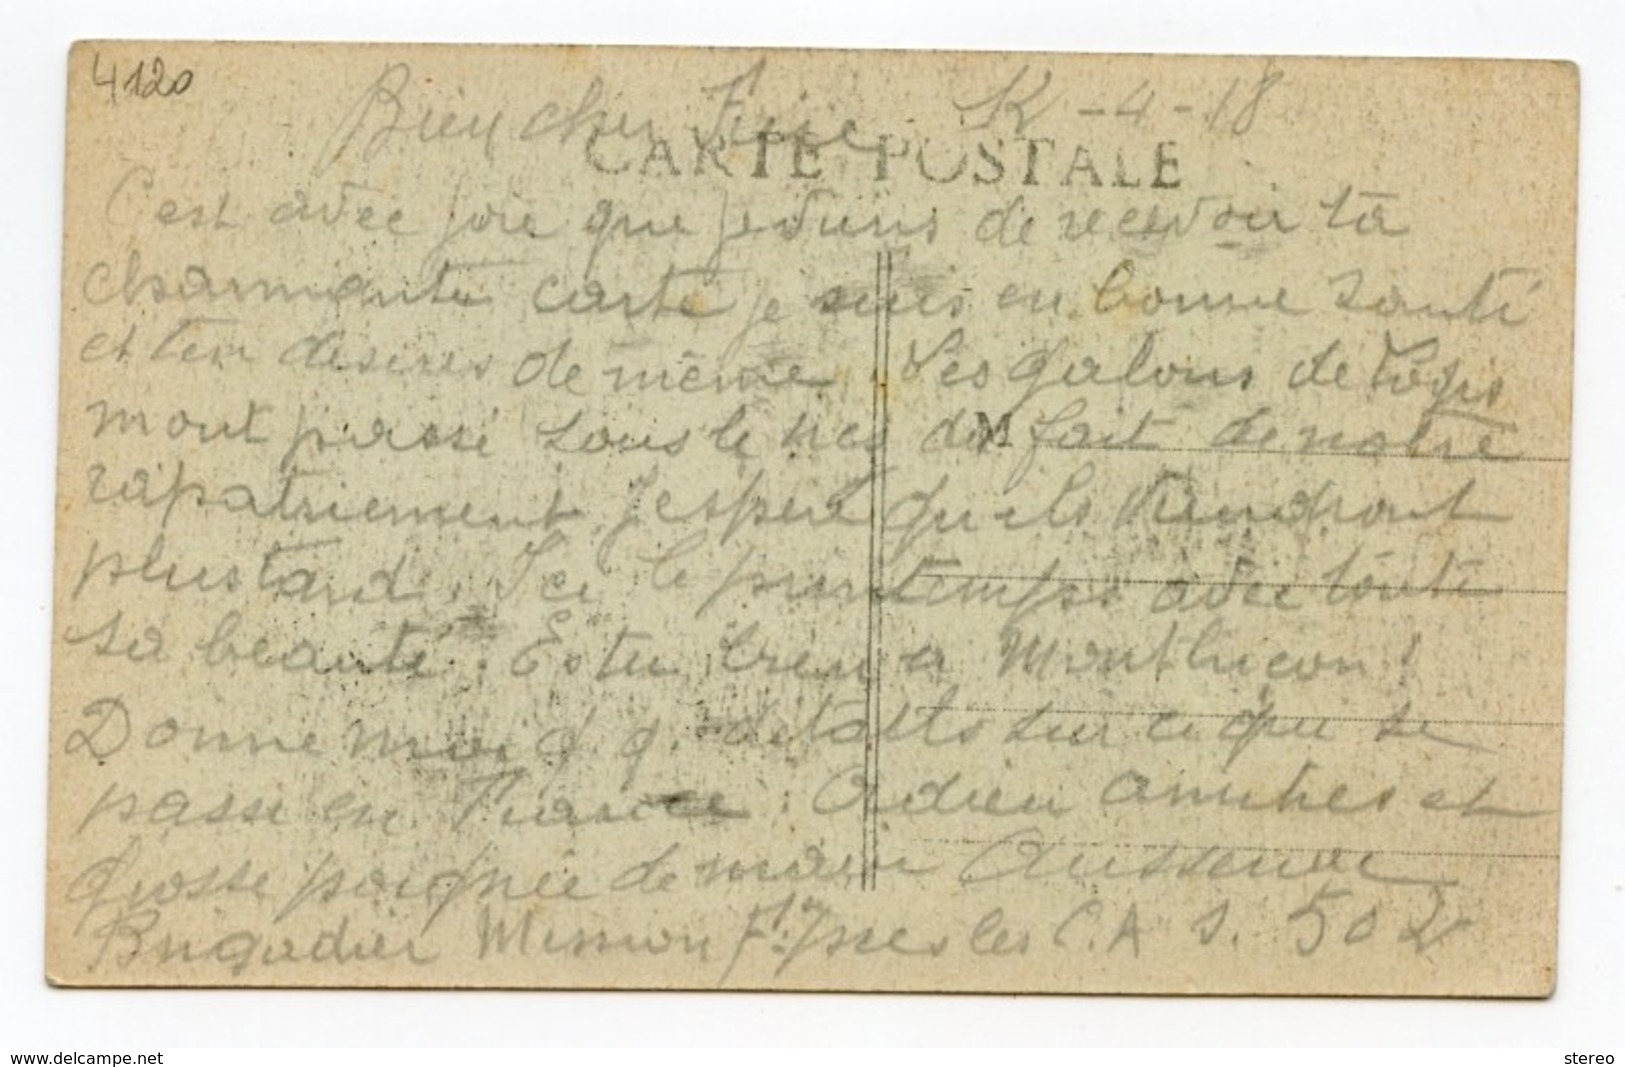 4120
Bien cher K -4-18
CARTE POSTALE
C'est avec joie que je viens de recevoir ta
charmante carte je suis en bonne santé
et t'en désires de même. Les galons de logis
mont passé sous le nez du fait de notre
M
rapatriement j'espere qu'ils viendront
plus tard. Ici le printemps avec toute
sa beauté. Es tu bien a Montluçon!
Donne moi q. q. détails sur ce que se
passe en France. Adieu amitiés et
grosse poignée de main
Brigadier Mission Fse C.A S. 502
www.delcampe.net
stereo